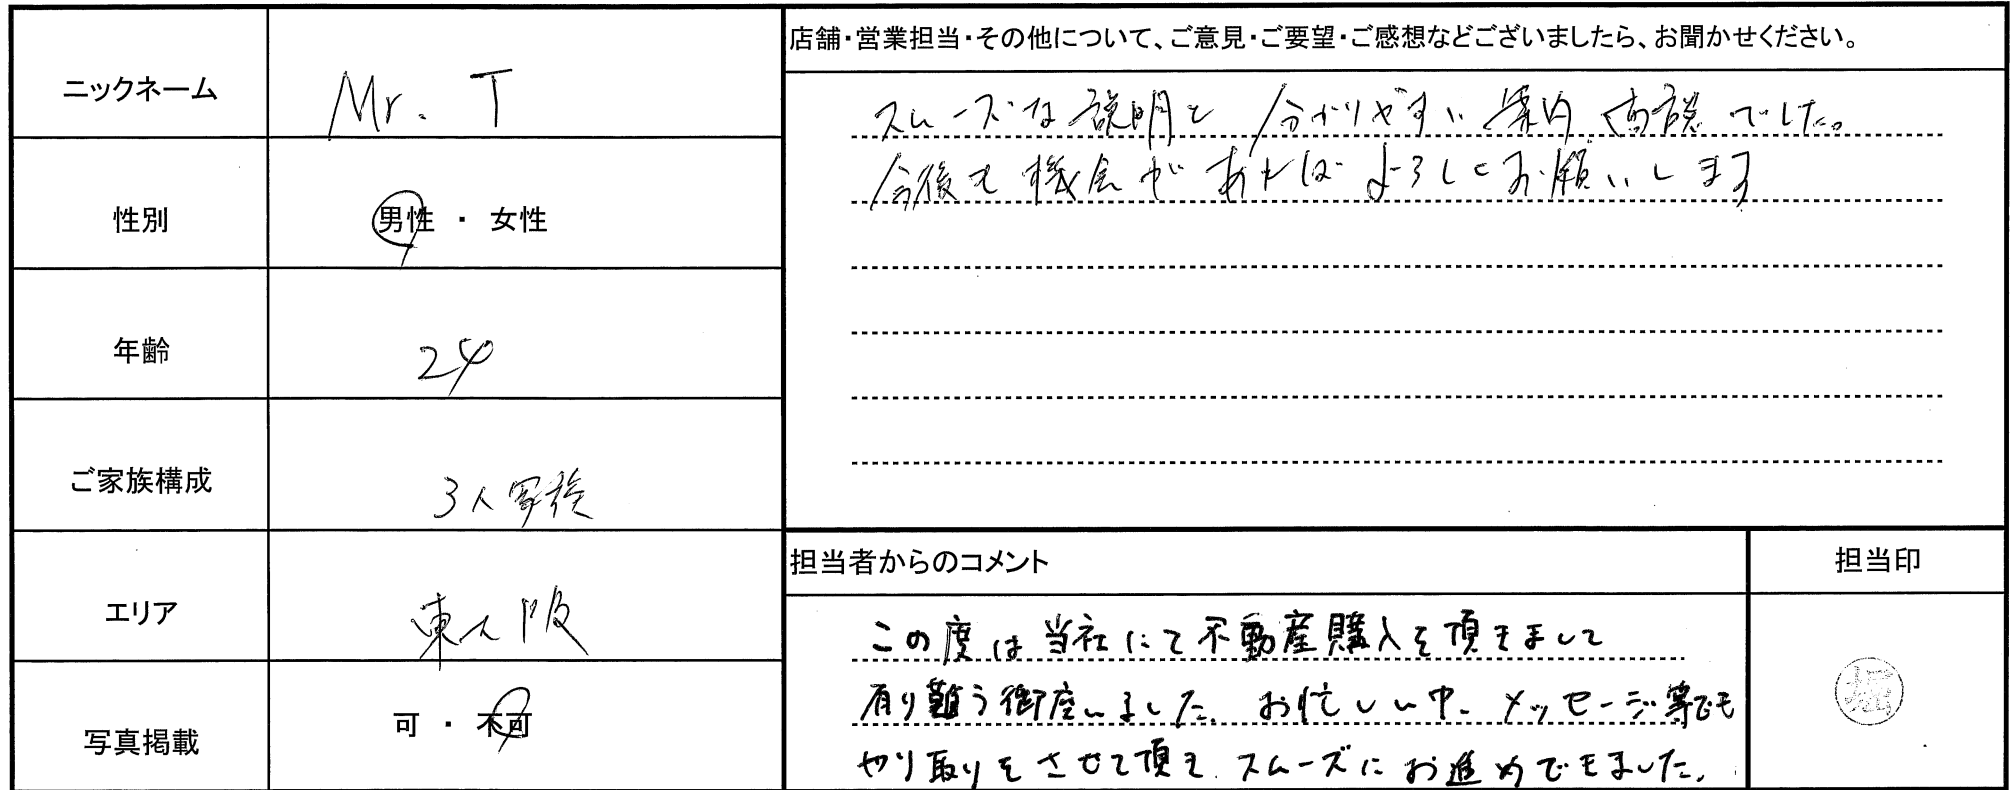 ニックネーム
Mr. T
性別
男性 ・ 女性
年齢
24
ご家族構成
3人家族
エリア
東大阪
写真掲載
可 ・ 不可
店舗・営業担当・その他について、ご意見・ご要望・ご感想などございましたら、お聞かせください。
スムーズな説明と 分かりやすい 案内 商談 でした。
今後も機会があればよろしくお願いします
担当者からのコメント
この度は当社にて不動産購入を頂きまして
有り難う御座いました。お忙しい中、メッセージ等でも
やり取りをさせて頂き、スムーズにお進めできました。
担当印
堀